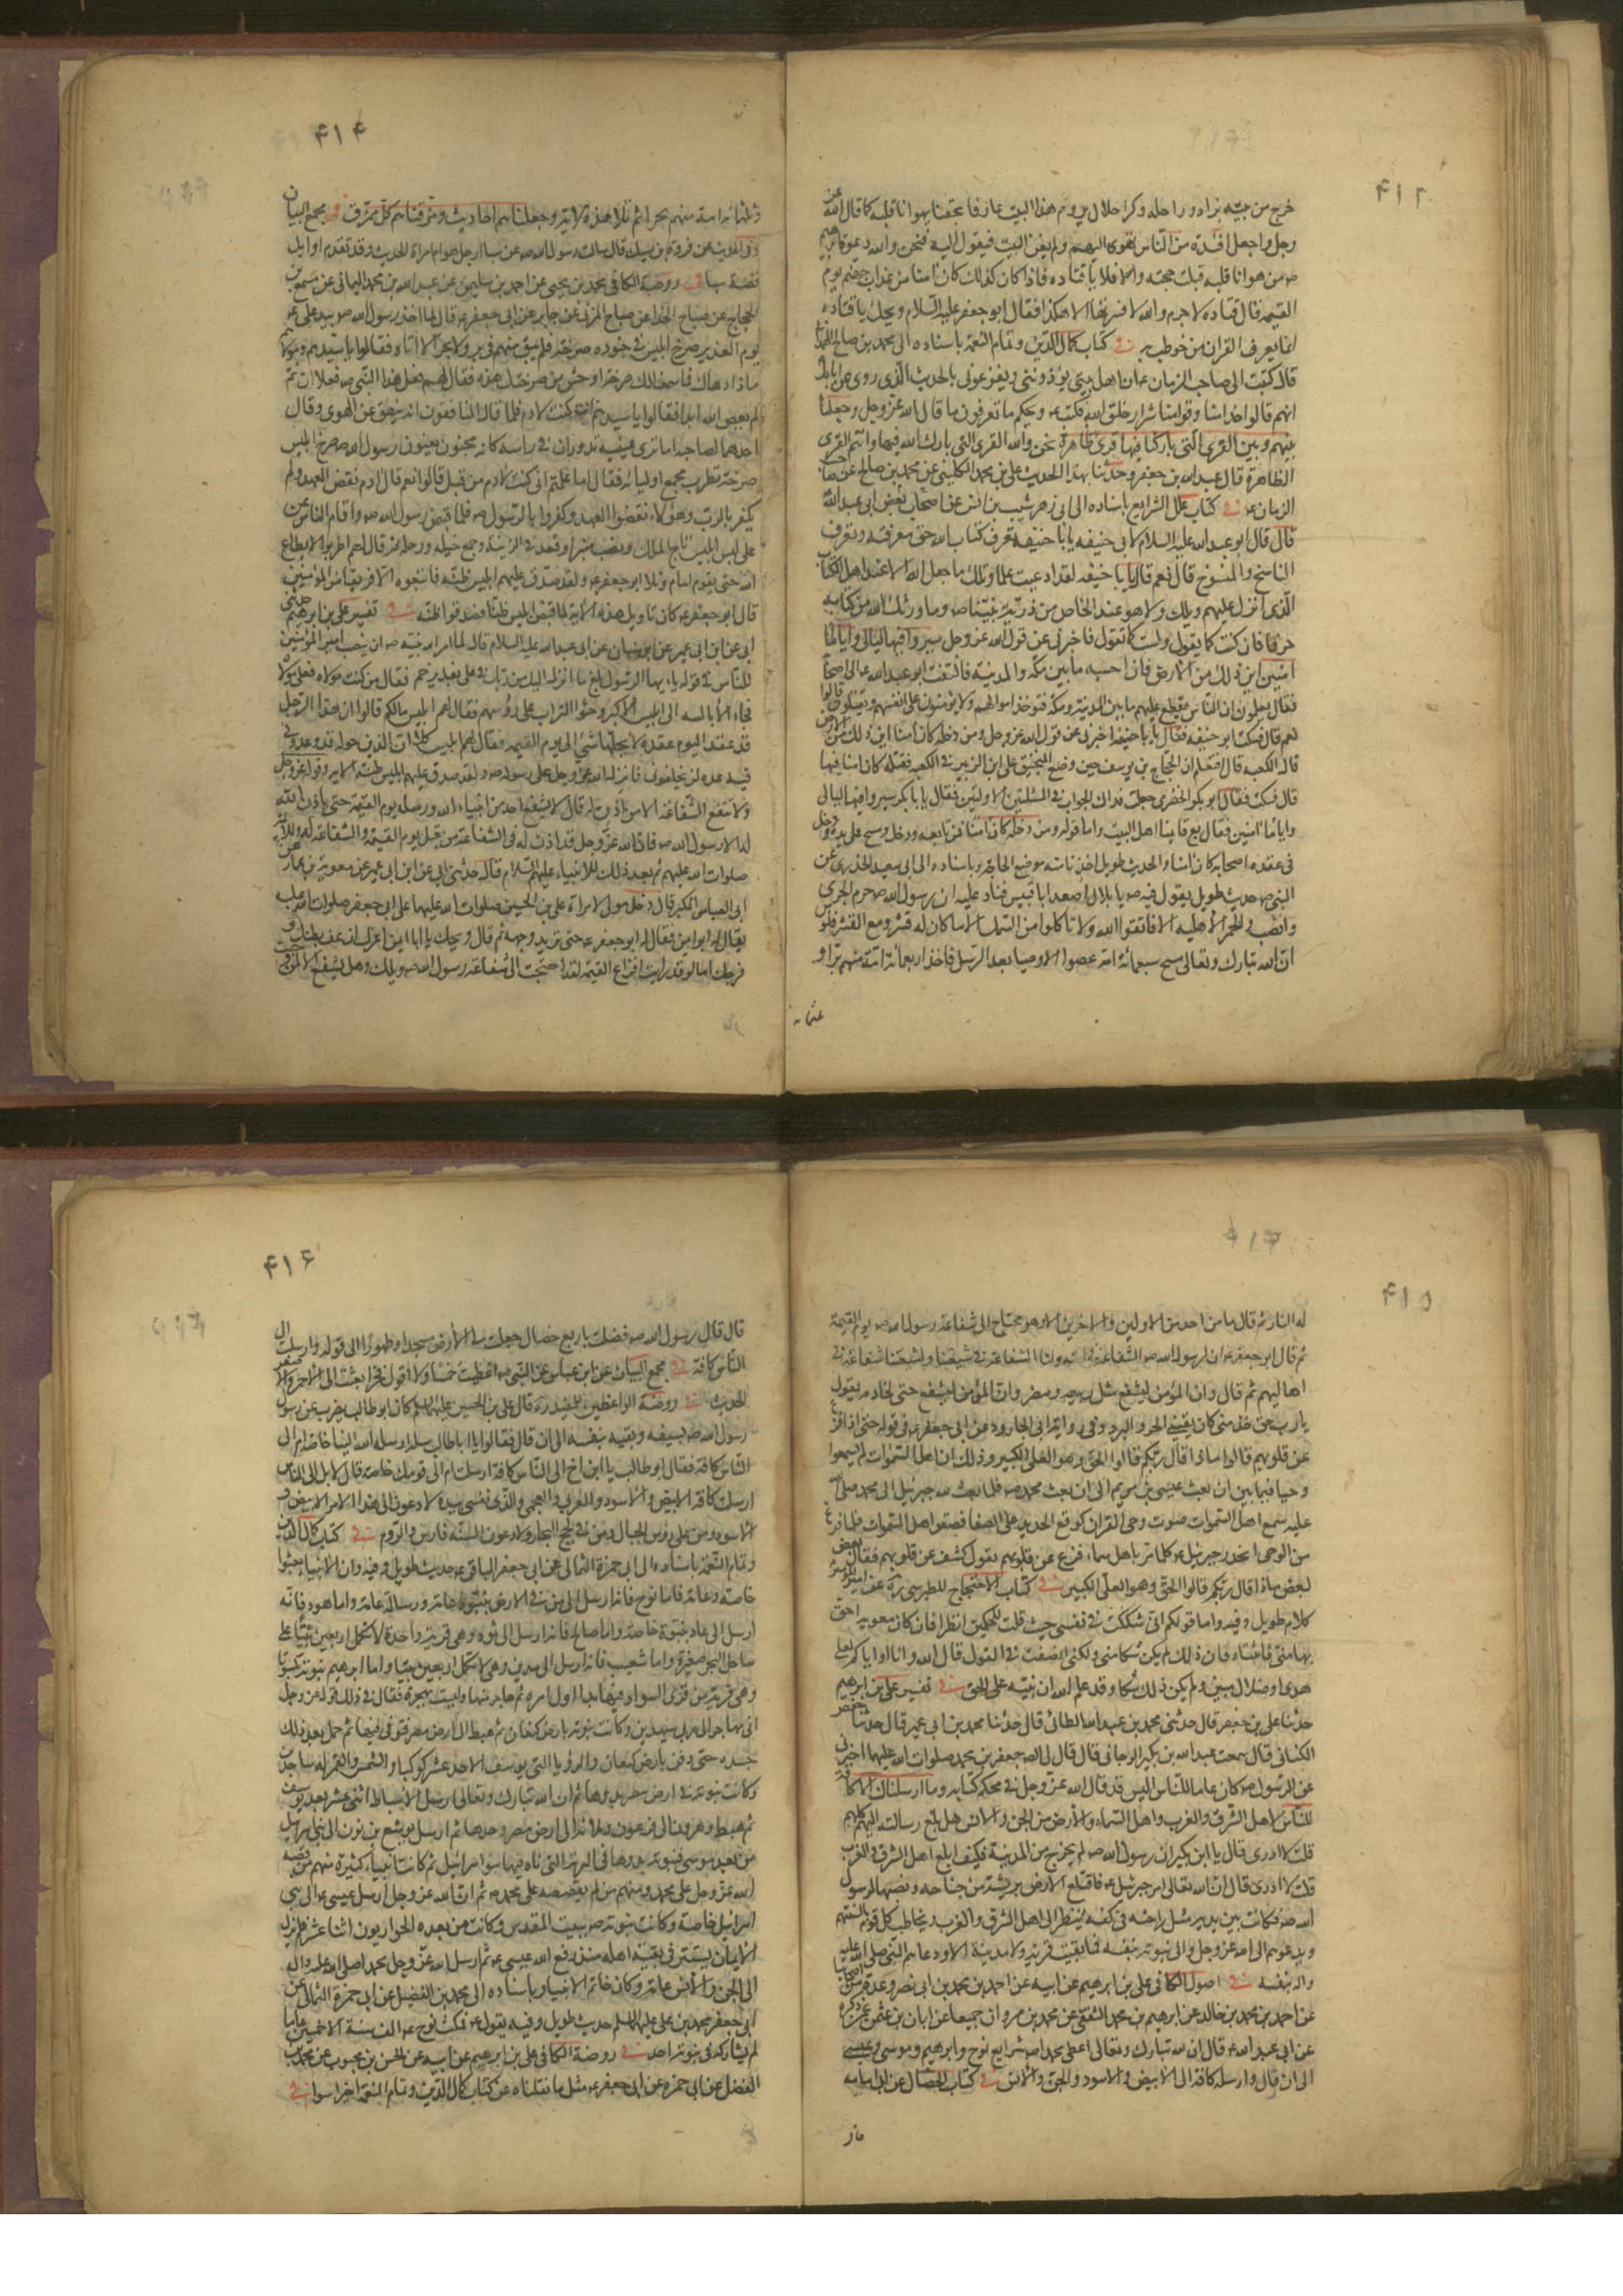 ۴۱۳
خرج من بيته بزاد وراحلة وكراء حلال يروم هذا البيت عارفا بحقنا يهوانا قلبه كما قال الله عز
وجل واجعل افئدة من الناس تهوى اليهم ولم يعن البيت فيقول اليه فنحن والله دعوة ابرهيم
ص من هوانا قلبه قبلت حجته والا فلا يا قتادة فاذا كان كذلك كان امنا من عذاب جهنم يوم
القيمة قال قتادة لا جرم والله لا فسرتها الا هكذا فقال ابو جعفر عليه السلام ويحك يا قتادة
انما يعرف القران من خوطب به في كتاب كمال الدين وتمام النعمة باسناده الى محمد بن صالح الهمداني
قال كتبت الى صاحب الزمان ع ان اهل بيتي يؤذونني ويقرعوني بالحديث الذي روى عن ابائك
انهم قالوا خدامنا وقوامنا شرار خلق الله فكتب ع ويحكم ما تعرفون ما قال الله عز وجل وجعلنا
بينهم وبين القرى التي باركنا فيها قرى ظاهرة نحن والله القرى التي بارك الله فيها وانتم القرى
الظاهرة قال عبد الله بن جعفر وحدثنا بهذا الحديث علي بن محمد الكليني عن محمد بن صالح عن صاحب
الزمان ع في كتاب علل الشرايع باسناده الى ابي زهر شبيب بن انس عن بعض اصحاب ابي عبد الله
قال قال ابو عبد الله عليه السلام لابي حنيفة يا با حنيفة تعرف كتاب الله حق معرفته وتعرف
الناسخ والمنسوخ قال نعم قال يا با حنيفة لقد ادعيت علما ويلك ما جعل الله الا عند اهل الكتاب
الذي انزل عليهم ويلك ولا هو عند الخاص من ذرية نبينا ص وما ورثك الله من كتابه
حرفا فان كنت كما تقول ولست كما تقول فاخبرني عن قول الله عز وجل سيروا فيها ليالي واياما
امنين اين ذلك من الارض قال احسبه ما بين مكة والمدينة فالتفت ابو عبد الله ع الى اصحابه
فقال تعلمون ان الناس يقطع عليهم ما بين المدينة ومكة فتؤخذ اموالهم ولا يؤمنون على انفسهم ويقتلون قالوا
نعم قال فسكت ابو حنيفة فقال يا با حنيفة اخبرني عن قول الله عز وجل ومن دخله كان امنا اين ذلك من الارض
قال الكعبة قال افتعلم ان الحجاج بن يوسف حين وضع المنجنيق على ابن الزبير في الكعبة فقتله كان امنا فيها
قال فسكت فقال ابو بكر الحضرمي جعلت فداك الجواب في المسئلتين الاولتين فقال يا با بكر سيروا فيها ليالي
واياما امنين فقال مع قائمنا اهل البيت واما قوله ومن دخله كان امنا فمن تابعه ودخل ومسح على يده ودخل
في عقده اصحابه كان امنا والحديث طويل اخذنا منه موضع الحاجة وباسناده الى ابي سعيد الخدري عن
النبي ص حديث طويل يقول فيه ص يا بلال اصعد ابا قبيس فناد عليه ان رسول الله ص حرم الجري
والضب والحمر الاهلية الا فاتقوا الله ولا تاكلوا من السمك الا ما كان له قشر ومع القشر فلوس
ان الله تبارك وتعالى مسخ سبعمائة امة عصوا الاوصياء بعد الرسل فاخذ اربعمائة امة منهم برا و
۴۱۴
وثلثمائة امة منهم بحرا ثم تلا هذه الاية وجعلناهم احاديث ومزقناهم كل ممزق في مجمع البيان
وفي الحديث عن فروة بن مسيك قال سالت رسول الله ص عن سبا ارجل هو ام امراة الحديث وقد تقدم اوايل
قصة سبا في روضة الكافي محمد بن يحيى عن احمد بن سليمن عن عبد الله بن محمد اليماني عن مسمع بن
الحجاج عن صباح الحذاء عن صباح المزني عن جابر عن ابي جعفر ع قال لما اخذ رسول الله ص بيد علي ع
يوم الغدير صرخ ابليس في جنوده صرخة فلم يبق منهم في بر ولا بحر الا اتاه فقالوا يا سيدهم ومولاهم
ماذا دهاك فما سمعنا لك صرخة اوحش من صرختك هذه فقال لهم فعل هذا النبي ص فعلا ان تم
لم يعص الله ابدا فقالوا يا سيدهم انت كنت لادم فلما قال المنافقون انه ينطق عن الهوى وقال
احدهما لصاحبه اما ترى عينيه تدوران في راسه كانه مجنون يعنون رسول الله ص صرخ ابليس
صرخة بطرب فجمع اولياءه فقال اما علمتم اني كنت لادم من قبل قالوا نعم قال ادم نقض العهد ولم
يكفر بالرب وهؤلاء نقضوا العهد وكفروا بالرسول ص فلما قبض رسول الله ص واقام الناس غير
علي لبس ابليس تاج الملك ونصب منبرا وقعد في الزينة وجمع خيله ورجله ثم قال لهم اطربوا لا يطاع
الله حتى يقوم امام وتلا ابو جعفر ع ولقد صدق عليهم ابليس ظنه فاتبعوه الا فريقا من المؤمنين
قال ابو جعفر ع كان تاويل هذه الاية لما قبض ابليس ظنا فصدقوا ظنه في تفسير علي بن ابرهيم حدثني
ابي عن ابن ابي عمير عن ابن سنان عن ابي عبد الله عليه السلام قال لما امر الله نبيه ص ان ينصب امير المؤمنين
للناس في قوله يا ايها الرسول بلغ ما انزل اليك من ربك في علي بغدير خم فقال من كنت مولاه فعلي مولاه
فجاءت الابالسة الى ابليس الاكبر وحثوا التراب على رؤسهم فقال لهم ابليس ما لكم قالوا ان هذا الرجل
قد عقد اليوم عقدة لا يحلها شئ الى يوم القيمة فقال لهم ابليس كلا ان الذين حوله قد وعدوني
فيه عدة لن يخلفوني فانزل الله عز وجل على رسوله ص ولقد صدق عليهم ابليس ظنه الاية وقوله عز وجل
ولا تنفع الشفاعة الا لمن اذن له قال لا يشفع احد من انبياء الله ورسله يوم القيمة حتى ياذن الله
له الا رسول الله ص فان الله عز وجل قد اذن له في الشفاعة من قبل يوم القيمة والشفاعة له وللائمة
صلوات الله عليهم ثم بعد ذلك للانبياء عليهم السلام قال حدثني ابي عن ابن ابي عمير عن معوية بن عمار عن
ابي العباس المكبر قال دخل مولى لامراة علي بن الحسين صلوات الله عليهما على ابي جعفر صلوات الله عليه
يقال له ابو ايمن فقال له ابو جعفر ع حتى تربد وجهه ثم قال ويحك يا ابا ايمن اغرك ان عف بطنك و
فرجك اما لو قد رايت افزاع القيمة لقد احتجت الى شفاعة رسول الله ص ويلك وهل يشفع الا لمن وجبت
۴۱۵
له النار ثم قال ما من احد من الاولين والاخرين الا وهو محتاج الى شفاعة رسول الله ص يوم القيمة
ثم قال ابو جعفر ع ان لرسول الله ص الشفاعة في امته ولنا الشفاعة في شيعتنا ولشيعتنا شفاعة في
اهاليهم ثم قال وان المؤمن ليشفع مثل ربيعة ومضر وان المؤمن ليشفع حتى لخادمه يقول
يا رب حق خدمتي كان يقيني الحر والبرد وفي رواية ابي الجارود عن ابي جعفر ع في قوله حتى اذا فزع
عن قلوبهم قالوا ماذا قال ربكم قالوا الحق وهو العلي الكبير وذلك ان اهل السموات لم يسمعوا
وحيا فيما بين ان بعث عيسى بن مريم الى ان بعث محمد ص فلما بعث الله جبرئيل الى محمد صلى الله
عليه سمع اهل السموات صوت وحي القران كوقع الحديد على الصفا فصعق اهل السموات فلما فرغ
من الوحي انحدر جبرئيل ع كلما مر باهل سماء فزع عن قلوبهم يقول كشف عن قلوبهم فقال بعض
لبعض ماذا قال ربكم قالوا الحق وهو العلي الكبير في كتاب الاحتجاج للطبرسي ره عن امير المؤمنين ع
كلام طويل وفيه واما قولكم اني شككت في نفسي حيث قلت للحكمين انظرا فان كان معوية احق
بها مني فاثبتاه فان ذلك لم يكن شكا مني ولكني انصفت في القول قال الله وانا او اياكم لعلى
هدى او ضلال مبين ولم يكن ذلك شكا وقد علم الله ان نبيه على الحق في تفسير علي بن ابرهيم
حدثنا علي بن جعفر قال حدثني محمد بن عبد الله الطائي قال حدثنا محمد بن ابي عمير قال حدثنا حفص
الكناني قال سمعت عبد الله بن بكير الدجاني قال قال لي الصادق جعفر بن محمد صلوات الله عليهما اخبرني
عن الرسول ص كان عاما للناس اليس قد قال الله عز وجل في محكم كتابه وما ارسلناك الا كافة
للناس لاهل الشرق والغرب واهل السماء والارض من الجن والانس هل بلغ رسالته اليهم كلهم
قلت لا ادري قال يا ابن بكير ان رسول الله ص لم يخرج من المدينة فكيف ابلغ اهل الشرق والغرب
قلت لا ادري قال ان الله تعالى امر جبرئيل ع فاقتلع الارض بريشة من جناحه ونصبها لرسول
الله ص فكانت بين يديه مثل راحته في كفه ينظر الى اهل الشرق والغرب ويخاطب كل قوم بالسنتهم
ويدعوهم الى الله عز وجل والى نبوته بنفسه فما بقيت قرية ولا مدينة الا ودعاهم النبي صلى الله عليه
واله بنفسه في اصول الكافي علي بن ابرهيم عن ابيه عن احمد بن محمد بن ابي نصر وعدة من اصحابنا
عن احمد بن محمد بن خالد عن ابرهيم بن محمد الثقفي عن محمد بن مروان جميعا عن ابان بن عثمن عمن ذكره
عن ابي عبد الله ع قال ان الله تبارك وتعالى اعطى محمدا ص شرايع نوح وابرهيم وموسى وعيسى
الى ان قال وارسله كافة الى الابيض والاسود والجن والانس في كتاب الخصال عن ابي امامة
قال
۴۱۶
قال قال رسول الله ص فضلت باربع خصال جعلت لي الارض مسجدا وطهورا الى قوله وارسلت الى
الناس كافة في مجمع البيان عن ابن عباس عن النبي ص اعطيت خمسا ولا اقول فخرا بعثت الى الاحمر والاسود
الحديث في روضة الواعظين للمفيد ره قال علي بن الحسين عليهما السلم كان ابو طالب يضرب عن رسول
رسول الله ص بسيفه ويقيه بنفسه الى ان قال فقالوا يا ابا طالب سله ارسله الله الينا خاصة ام الى
الناس كافة فقال ابو طالب يا ابن اخ الى الناس كافة ارسلت ام الى قومك خاصة قال لا بل الى الناس
ارسلت كافة الابيض والاسود والعربي والعجمي والذي نفسي بيده لادعون الى هذا الامر الابيض و
الاسود ومن على رؤس الجبال ومن في لجج البحار ولادعون السنة فارس والروم في كتاب كمال الدين
وتمام النعمة باسناده الى ابي حمزة الثمالي عن ابي جعفر الباقر ع حديث طويل وفيه وان الانبياء بعثوا
خاصة وعامة فاما نوح فانه ارسل الى من في الارض بنبوة عامة ورسالة عامة واما هود فانه
ارسل الى عاد بنبوة خاصة واما صالح فانه ارسل الى ثمود وهي قرية واحدة لا تكمل اربعين بيتا على
ساحل البحر صغيرة واما شعيب فانه ارسل الى مدين وهي لا تكمل اربعين بيتا واما ابرهيم نبوته بكوثا
وهي قرية من قرى السواد فيها بدا اول امره ثم هاجر منها وليست بهجرة فقال في ذلك قوله عز وجل
اني مهاجر الى ربي سيهدين وكانت نبوته بارض كنعان ثم هبط الى ارض مصر فتوفي فيها ثم حمل بعد ذلك
جسده حتى دفن بارض كنعان والرؤيا التي يوسف الاحد عشر كوكبا والشمس والقمر له ساجدين
وكانت نبوته في ارض مصر بدوها ثم ان الله تبارك وتعالى ارسل الاسباط اثني عشر بعد يوسف
ثم موسى وهرون الى فرعون وملائه الى ارض مصر وحدها ثم ارسل يوشع بن نون الى بني اسرائيل
من بعد موسى فنبوته بدوها في البرية التي تاه فيها بنو اسرائيل ثم كانت انبياء كثيرة منهم من قصه
الله عز وجل على محمد ومنهم من لم يقصصه على محمد ص ثم ان الله عز وجل ارسل عيسى ع الى بني
اسرائيل خاصة وكانت نبوته ببيت المقدس وكانت من بعده الحواريون اثنا عشر فلم يزل
الايمان يستتر في بقية اهله منذ رفع الله عيسى ع ثم ارسل الله عز وجل محمدا صلى الله عليه واله
الى الجن والانس عامة وكان خاتم الانبياء وباسناده الى محمد بن الفضيل عن ابي حمزة الثمالي عن
ابي جعفر محمد بن علي عليهما السلم حديث طويل وفيه يقول ع فمكث نوح ع الف سنة الا خمسين عاما
لم يشاركه في نبوته احد في روضة الكافي علي بن ابرهيم عن ابيه عن الحسن بن محبوب عن محمد بن
الفضل عن ابي حمزة عن ابي جعفر ع مثل ما نقلناه عن كتاب كمال الدين وتمام النعمة اخيرا سواء في